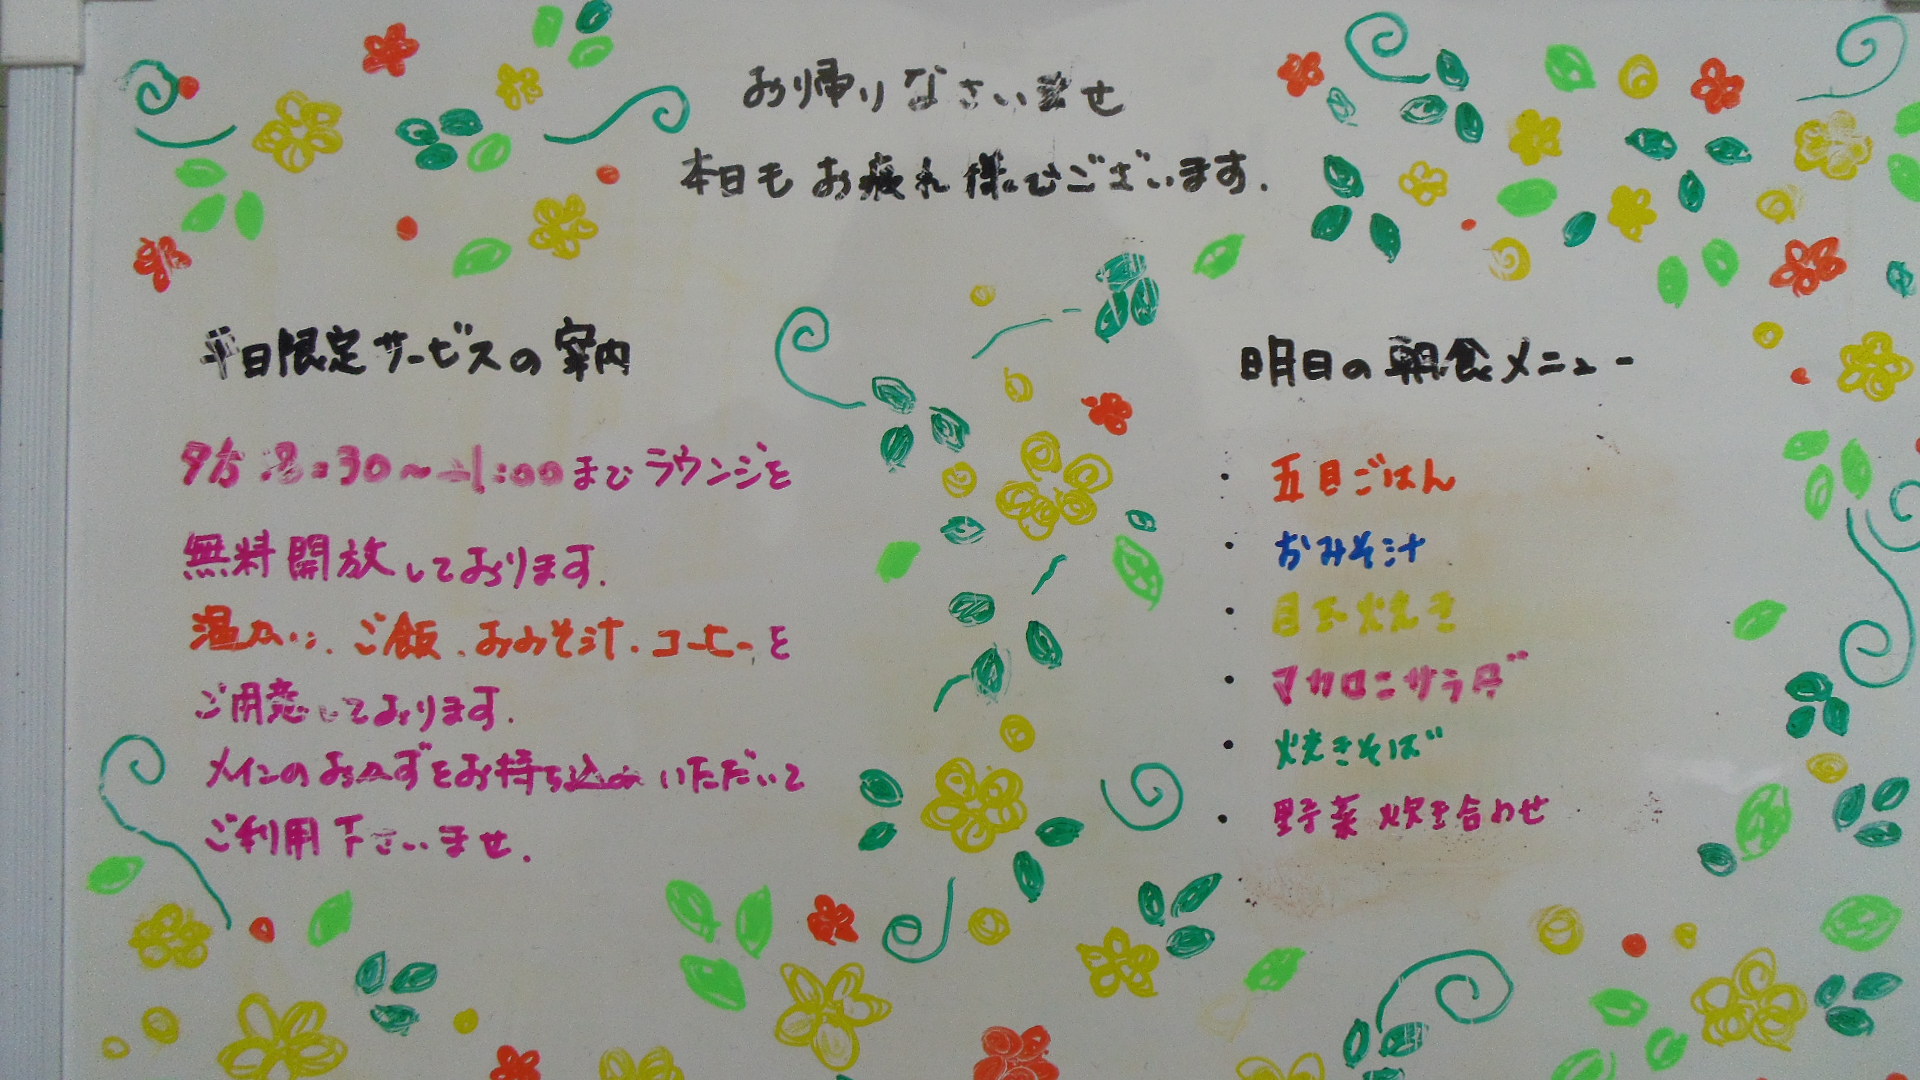 お帰りなさいませ
本日もお疲れ様でございます.
平日限定サービスの案内
夕方:8:30〜 1:00までラウンジを
無料開放しております.
温かい、ご飯、おみそ汁、コーヒーを
ご用意しております.
メインのおかずをお持ち込みいただいて
ご利用下さいませ.
明日の朝食メニュー
・五目ごはん
・おみそ汁
・目玉焼き
・マカロニサラダ
・焼きそば
・野菜炊き合わせ